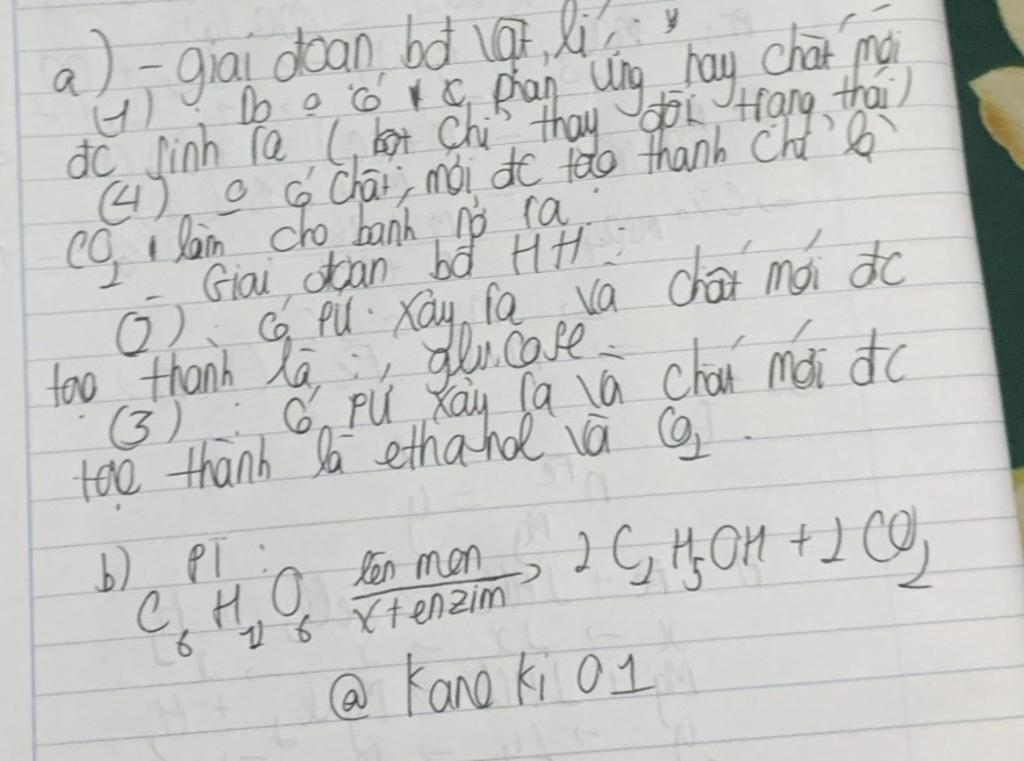 a) - giai đoạn bđ vật lí:
(1) : Do o có c phản ứng hay chất mới
đc sinh ra ( bột chỉ thay đổi trạng thái)
(4) o có chất mới đc tạo thành chỉ là
CO2 làm cho bánh nở ra
- Giai đoạn bđ HH :
(2) : Có PƯ xảy ra và chất mới đc
tạo thành là : glucose
(3) : Có PƯ xảy ra và chất mới đc
tạo thành là ethanol và CO2 .
b) PT :
C6H12O6 lên men/xt enzim → 2C2H5OH + 2CO2
@ Kaneki 01